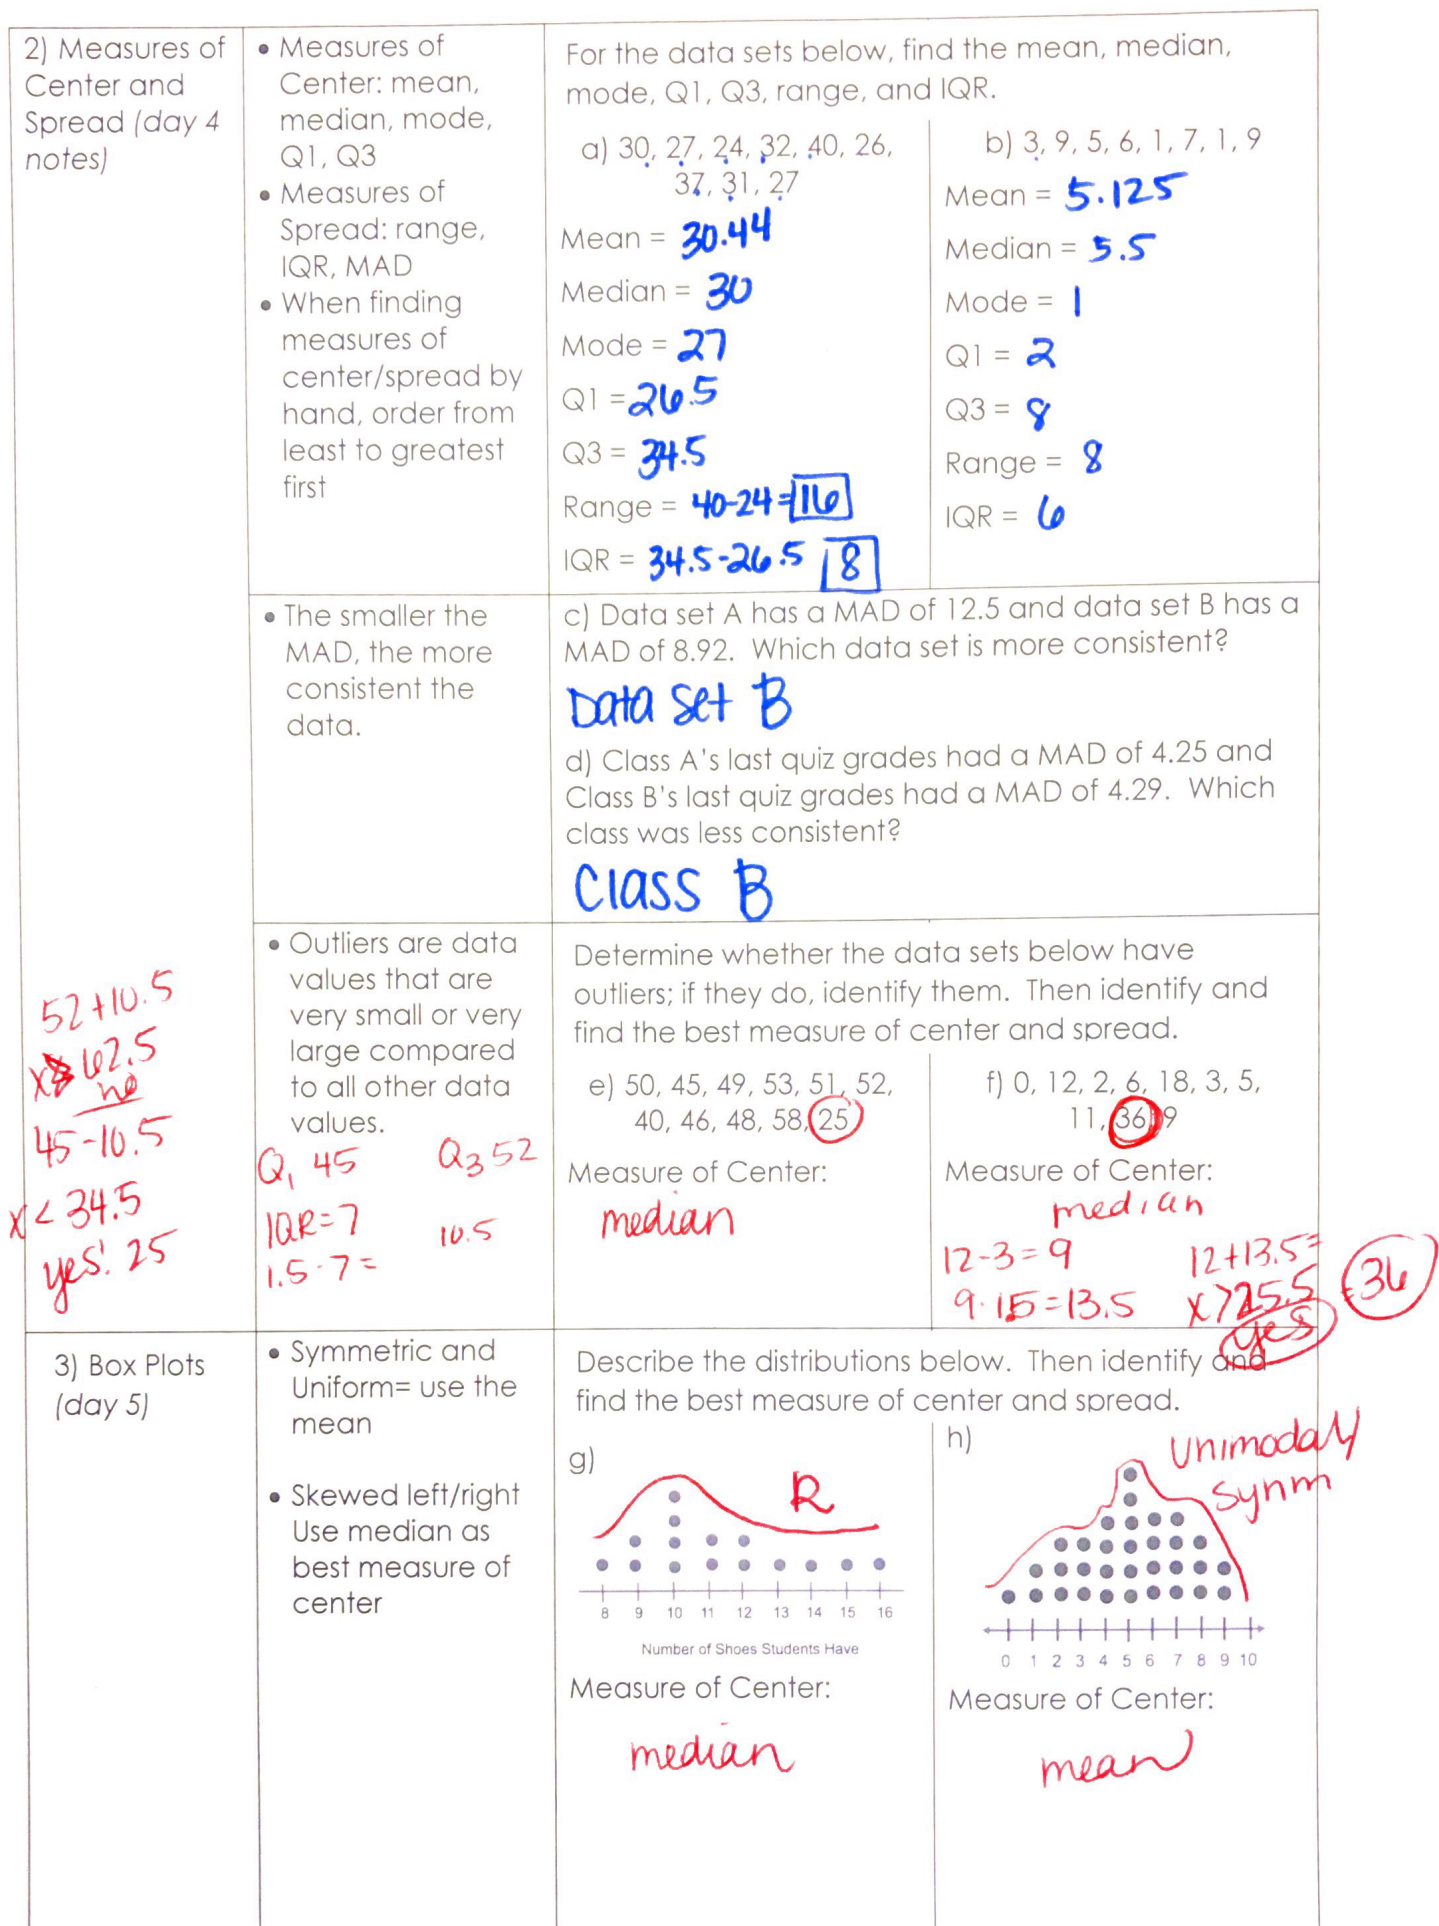 2) Measures of
Center and
Spread (day 4
notes)
• Measures of
Center: mean,
median, mode,
Q1, Q3
• Measures of
Spread: range,
IQR, MAD
• When finding
measures of
center/spread by
hand, order from
least to greatest
first
For the data sets below, find the mean, median,
mode, Q1, Q3, range, and IQR.
a) 30, 27, 24, 32, 40, 26,
37, 31, 27
Mean = 30.44
Median = 30
Mode = 27
Q1 = 26.5
Q3 = 34.5
Range = 40-24 = 16
IQR = 34.5-26.5 8
b) 3, 9, 5, 6, 1, 7, 1, 9
Mean = 5.125
Median = 5.5
Mode = 1
Q1 = 2
Q3 = 8
Range = 8
IQR = 6
• The smaller the
MAD, the more
consistent the
data.
c) Data set A has a MAD of 12.5 and data set B has a
MAD of 8.92. Which data set is more consistent?
Data Set B
d) Class A's last quiz grades had a MAD of 4.25 and
Class B's last quiz grades had a MAD of 4.29. Which
class was less consistent?
Class B
52+10.5
62.5
no
45-10.5
x < 34.5
yes! 25
• Outliers are data
values that are
very small or very
large compared
to all other data
values.
Q1 45 Q3 52
IQR=7
1.5·7= 10.5
Determine whether the data sets below have
outliers; if they do, identify them. Then identify and
find the best measure of center and spread.
e) 50, 45, 49, 53, 51, 52,
40, 46, 48, 58, 25
Measure of Center:
median
f) 0, 12, 2, 6, 18, 3, 5,
11, 36, 9
Measure of Center:
median
12-3=9
9·1.5=13.5
12+13.5=
x>25.5
yes
36
3) Box Plots
(day 5)
• Symmetric and
Uniform= use the
mean
• Skewed left/right
Use median as
best measure of
center
Describe the distributions below. Then identify and
find the best measure of center and spread.
g)
R
8 9 10 11 12 13 14 15 16
Number of Shoes Students Have
Measure of Center:
median
h)
Unimodal/
Symm
0 1 2 3 4 5 6 7 8 9 10
Measure of Center:
mean